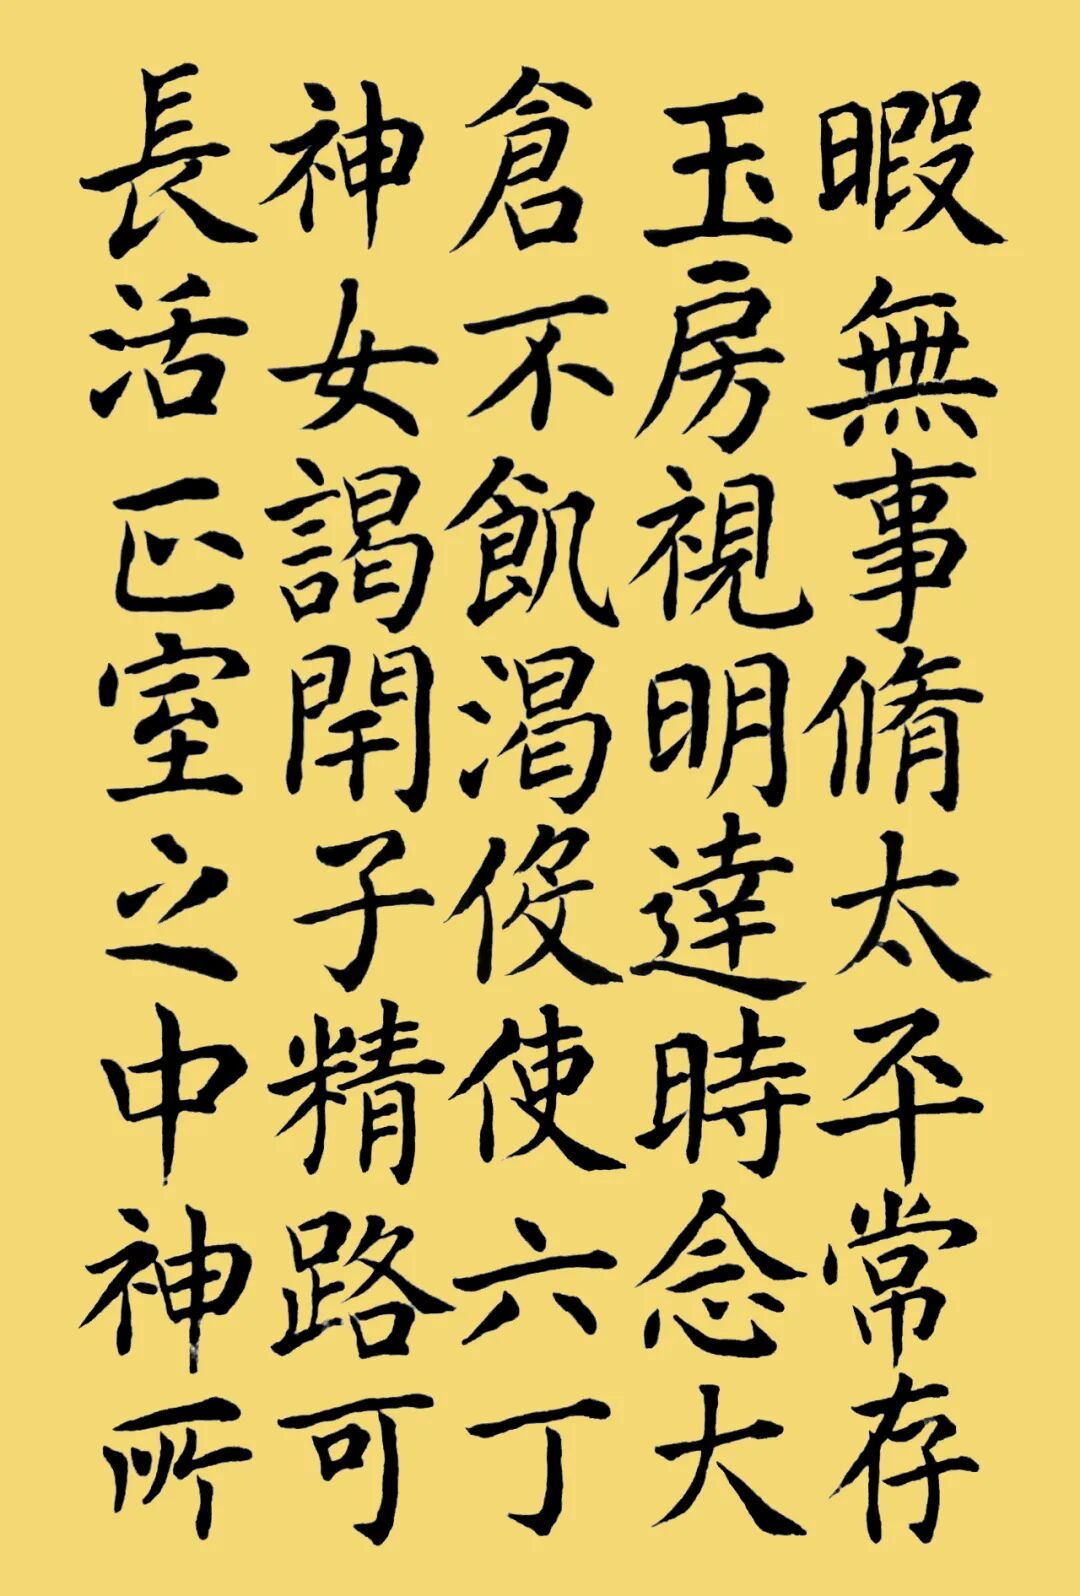 暇無事脩太平常存
玉房視明達時念大
倉不飢渴役使六丁
神女謁閇子精路可
長活正室之中神所